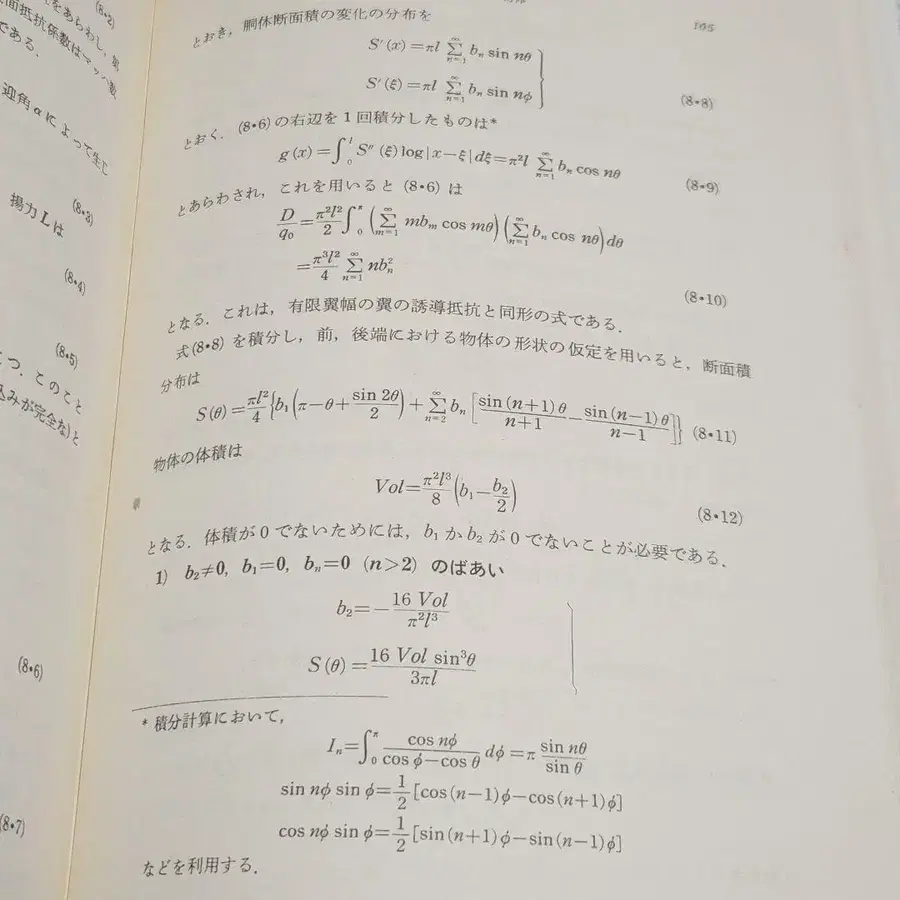 (8•2)
をあらわし,第
面抵抗係数はマッハ数
である.
迎角αによって生じ
(8•3)
揚力Lは
(8•4)
(8•5)
つ.このこと
込みが完全な)と
(8•6)
(8•7)
105
とおき,胴体断面積の変化の分布を
S′(x)=πl ∑_{n=1}^{∞} b_n sin nθ
S′(ξ)=πl ∑_{n=1}^{∞} b_n sin nφ
(8•8)
とおく.(8•6)の右辺を1回積分したものは*
g(x)=∫_0^l S″(ξ)log|x−ξ|dξ=π²l ∑_{n=1}^{∞} b_n cos nθ (8•9)
とあらわされ,これを用いると(8•6)は
D/q₀=π²l²/2 ∫_0^π (∑_{m=1}^{∞} mb_m cos mθ)(∑_{n=1}^{∞} b_n cos nθ)dθ
=π³l²/4 ∑_{n=1}^{∞} nb_n² (8•10)
となる.これは,有限翼幅の翼の誘導抵抗と同形の式である.
式(8•8)を積分し,前,後端における物体の形状の仮定を用いると,断面積
分布は
S(θ)=πl²/4{b₁(π−θ+sin 2θ/2)+∑_{n=2}^{∞} b_n[sin(n+1)θ/n+1−sin(n−1)θ/n−1]} (8•11)
物体の体積は
Vol=π²l³/8(b₁−b₂/2) (8•12)
となる.体積が0でないためには,b₁かb₂が0でないことが必要である.
1) b₂≠0, b₁=0, b_n=0 (n>2) のばあい
b₂=−16 Vol/π²l³
S(θ)=16 Vol sin³θ/3πl
* 積分計算において,
I_n=∫_0^π cos nφ/cos φ−cos θ dφ=π sin nθ/sin θ
sin nφ sin φ=1/2[cos(n−1)φ−cos(n+1)φ]
cos nφ sin φ=1/2[sin(n+1)φ−sin(n−1)φ]
などを利用する.